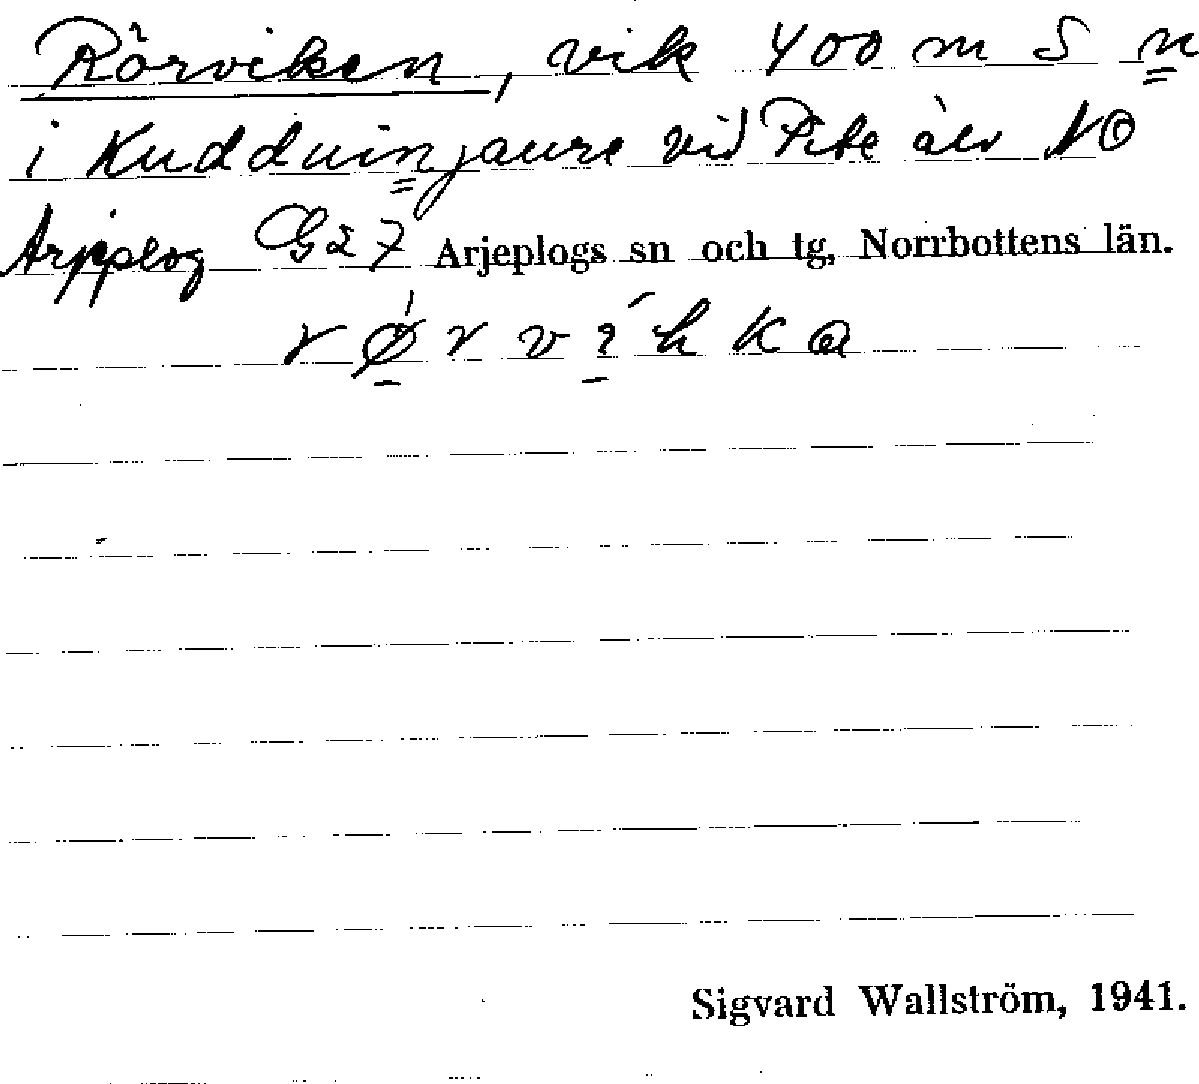 Rörviken, vik 400 m S n
i Kudduinjaure vid Pite älv NO
Arjeplog G27 Arjeplogs sn och tg, Norrbottens län.
Sigvard Wallström, 1941.